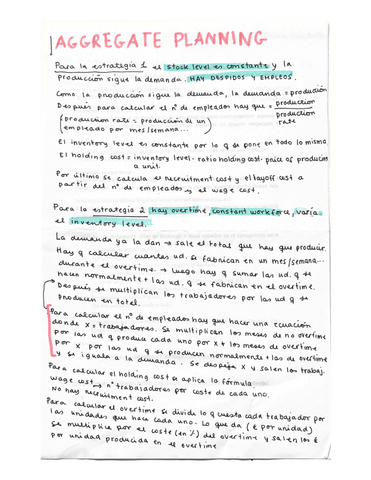 AGGREGATE PLANNING
Para la estrategia 1 el stock level es constante y la
producción sigue la demanda. HAY DESPIDOS Y EMPLEOS.
Como la producción sigue la demanda, la demanda = producción
Después para calcular el nº de empleados hay que = production
production rate
(production rate = producción de un
empleado por mes/semana...)
El inventory level es constante por lo q se pone en todo lo mismo
El holding cost = inventory level · ratio holding cost · price of producing
a unit.
Por último se calcula el recruitment cost y el layoff cost a
partir del nº de empleados y el wage cost.
Para la estrategia 2 hay overtime, constant workforce, varía
el inventory level.
La demanda ya la dan → sale el total que hay que producir.
Hay q calcular cuantas ud. se fabrican en un mes/semana...
durante el overtime. → luego hay q sumar las ud. q se
hacen normalmente + las ud. q se fabrican en el overtime.
Después se multiplican los trabajadores por las ud q se
producen en total.
Para calcular el nº de empleados hay que hacer una ecuación
donde x = trabajadores. Se multiplican los meses de no overtime
por las ud q produce cada uno por x + los meses de overtime
por x por las ud q se producen normalmente + las de overtime
y se iguala a la demanda. Se despeja x y salen los trabaj.
Para calcular el holding cost se aplica la fórmula
wage cost → nº trabajadores por coste de cada uno.
No hay recruitment cost.
Para calcular el overtime se divide lo q cuesta cada trabajador por
las unidades que hace cada uno. Lo que da (€ por unidad)
se multiplica por el coste (en %) del overtime y salen los €
por unidad producida en el overtime